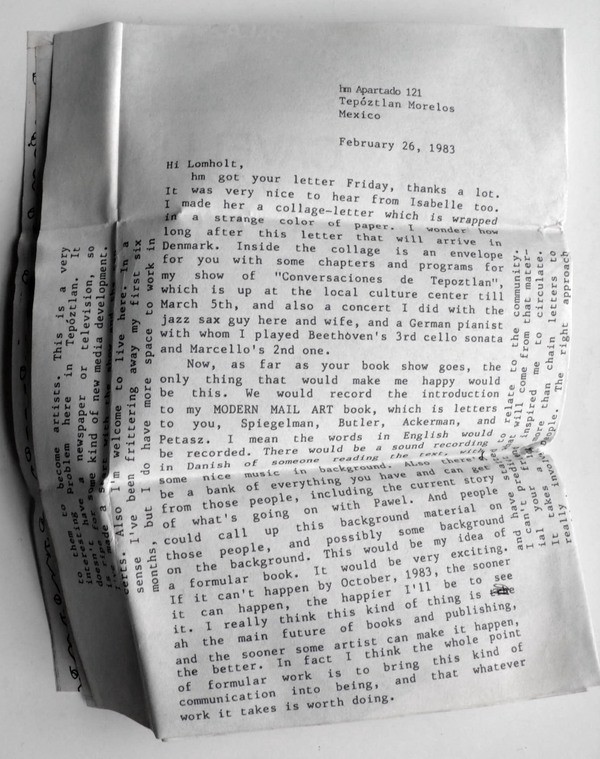 hm Apartado 121
Tepóztlan Morelos
Mexico
February 26, 1983
Hi Lomholt,
hm got your letter Friday, thanks a lot.
It was very nice to hear from Isabelle too.
I made her a collage-letter which is wrapped
in a strange color of paper. I wonder how
long after this letter that will arrive in
Denmark. Inside the collage is an envelope
for you with some chapters and programs for
my show of "Conversaciones de Tepoztlan",
which is up at the local culture center till
March 5th, and also a concert I did with the
jazz sax guy here and wife, and a German pianist
with whom I played Beethoven's 3rd cello sonata
and Marcello's 2nd one.
Now, as far as your book show goes, the
only thing that would make me happy would
be this. We would record the introduction
to my MODERN MAIL ART book, which is letters
to you, Spiegelman, Butler, Ackerman, and
Petasz. I mean the words in English would
be recorded. There would be a sound recording
in Danish of someone reading the text, with
some nice music in background. Also
be a bank of everything you have and can get
from those people, including the current story
of what's going on with Pawel. And people
could call up this background material on
those people, and possibly some background
on the background. This would be my idea of
a formular book. It would be very exciting.
If it can't happen by October, 1983, the sooner
it can happen, the happier I'll be to see
it. I really think this kind of thing is
ah the main future of books and publishing,
and the sooner some artist can make it happen,
the better. In fact I think the whole point
of formular work is to bring this kind of
communication into being, and that whatever
work it takes is worth doing.
them to become artists. This is a very
interesting problem here in Tepóztlan. It
doesn't have a newspaper or television, so
kind of new media development.
certs. Also I'm welcome to live here. In a
sense I've been frittering away my first six
months, but I do have more space to work in
relate to the community.
will come from that mater-
inspired me to circulate.
more than chain letters to
people. The right approach
really